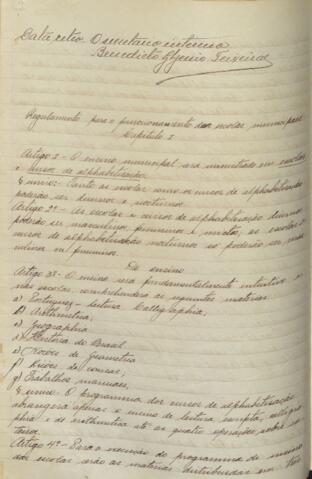 Data retro. O secretario interino
Benedicto Glycerio Teixeira
Regulamento para o funccionamento das escolas municipaes
Capitulo I
Artigo 1º - O ensino municipal será ministrado em escolas
e cursos de alphabetização.
§ unico: - Tanto as escolas como os cursos de alphabetização
poderão ser diurnos e nocturnos.
Artigo 2º - As escolas e cursos de alphabetização diurnos
poderão ser masculinos, femininos e mixtos; as escolas e
cursos de alphabetização nocturnos só poderão ser mas-
culinos ou femininos.
Do ensino
Artigo 3º - O ensino será fundamentalmente intuitivo e
nas escolas comprehenderá as seguintes materias:
a) Portuguez - leitura, Calligraphia;
b) Arithmetica;
c) Geographia
d) Historia do Brasil
e) Noções de Geometria
f) Lições de cousas;
g) Trabalhos manuaes,
§ unico: - O programma dos cursos de alphabetização
abrangerá apenas o ensino de leitura, escripta, calligra-
phia e de arithmetica até as quatro operações sobre in-
teiros.
Artigo 4º - Para a execução do programma de ensino
das escolas serão as materias distribuidas em tres